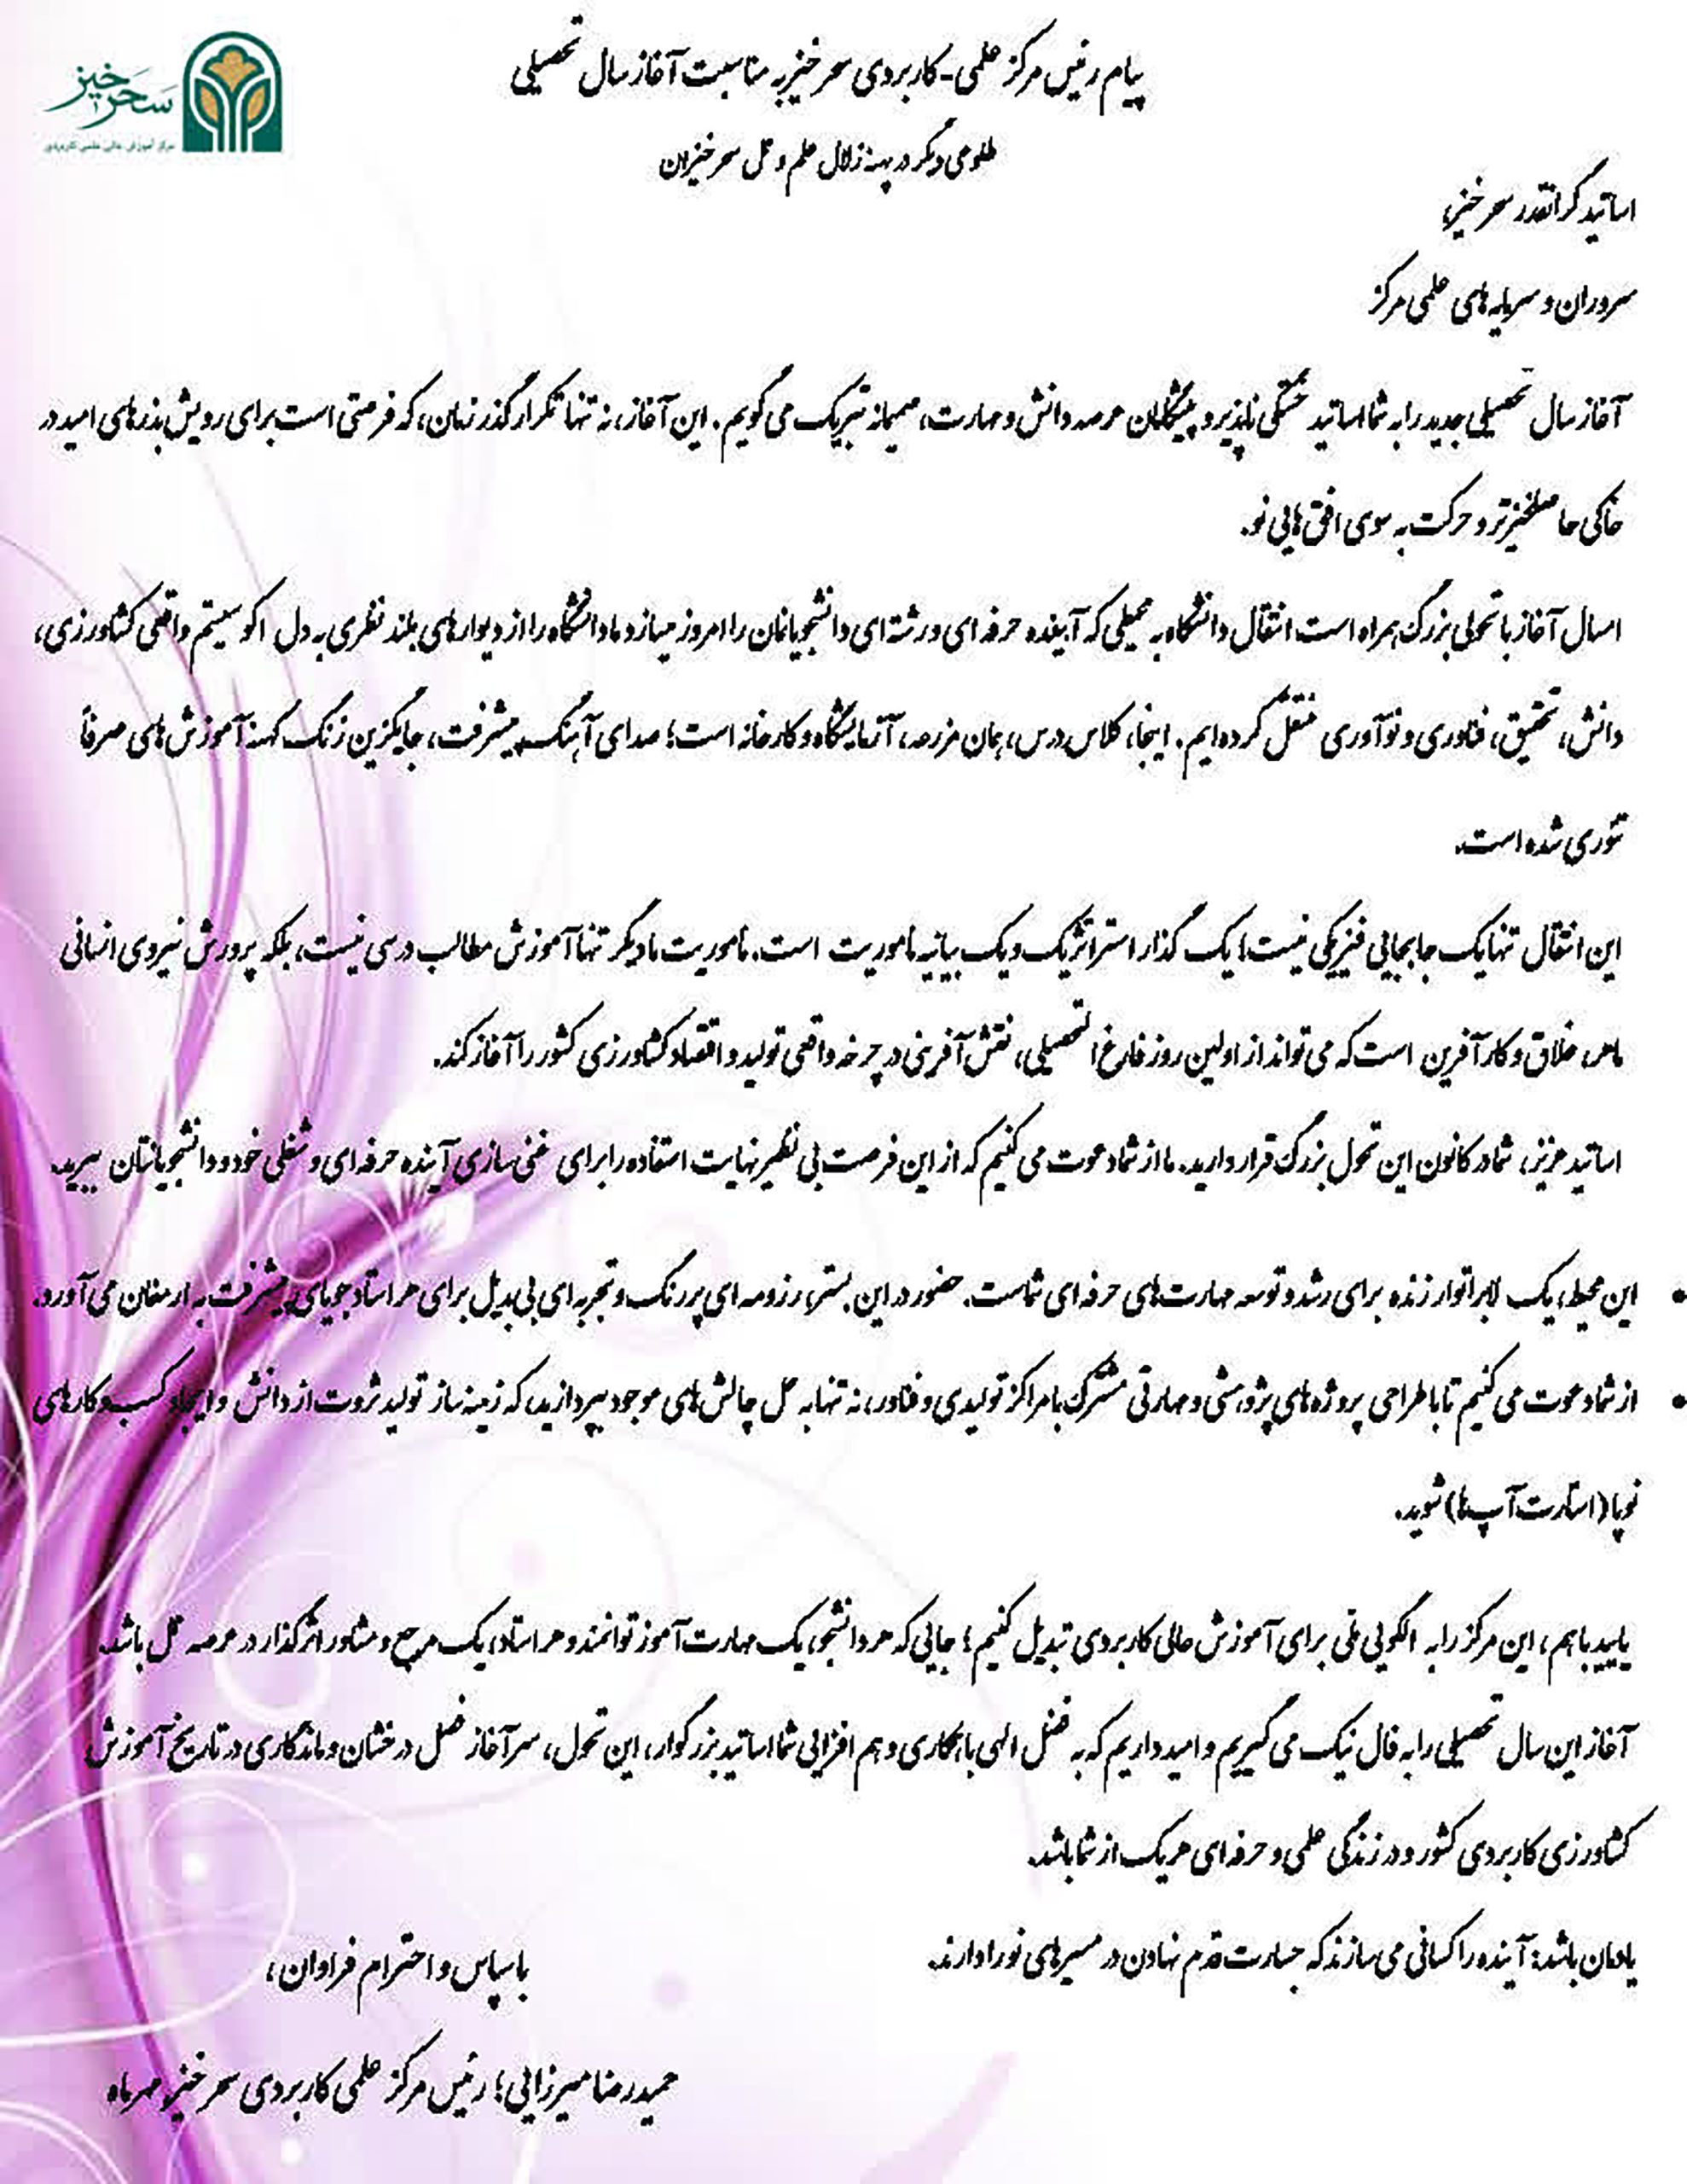 سحرخیز
مرکز آموزش عالی علمی کاربردی
پیام رئیس مرکز علمی-کاربردی سحرخیز به مناسبت آغاز سال تحصیلی
طلوعی دیگر در پهنه زلال علم و عمل سحرخیزان
اساتید گرانقدر سحرخیز،
سروران و سرمایه‌های علمی مرکز
آغاز سال تحصیلی جدید را به شما اساتید خستگی ناپذیر و پیشگامان عرصه دانش و مهارت، صمیمانه تبریک می گویم. این آغاز، نه تنها تکرار گذر زمان، که فرصتی است برای رویش بذرهای امید در
خاکی حاصلخیزتر و حرکت به سوی افق هایی نو.
امسال آغاز با تحولی بزرگ همراه است: انتقال دانشگاه به محیطی که آینده حرفه ای و رشته ای دانشجویانمان را امروز میسازد ما دانشگاه را از دیوارهای بلند نظری به دل اکوسیستم واقعی کشاورزی،
دانش، تحقیق، فناوری و نوآوری منتقل کرده‌ایم. اینجا، کلاس درس، همان مزرعه، آزمایشگاه و کارخانه است؛ صدای آهنگ پیشرفت، جایگزین زنگ کهنه آموزش های صرفاً
تئوری شده است.
این انتقال تنها یک جابجایی فیزیکی نیست؛ یک گذار استراتژیک و یک بیانیه مأموریت است. مأموریت ما دیگر تنها آموزش مطالب درسی نیست، بلکه پرورش نیروی انسانی
ماهر، خلاق و کارآفرین است که می تواند از اولین روز فارغ التحصیلی، نقش آفرینی در چرخه واقعی تولید و اقتصاد کشاورزی کشور را آغاز کند.
اساتید عزیز، شما در کانون این تحول بزرگ قرار دارید. ما از شما دعوت می کنیم که از این فرصت بی نظیر نهایت استفاده را برای غنی سازی آینده حرفه ای و شغلی خود و دانشجویانتان ببرید.
• این محیط، یک لابراتوار زنده برای رشد و توسعه مهارت‌های حرفه ای شماست. حضور در این بستر، رزومه ای پررنگ و تجربه ای بی بدیل برای هر استاد جویای پیشرفت به ارمغان می آورد.
• از شما دعوت می کنیم تا با طراحی پروژه های پژوهشی و مهارتی مشترک با مراکز تولیدی و فناور، نه تنها به حل چالش های موجود بپردازید، که زمینه ساز تولید ثروت از دانش و ایجاد کسب و کارهای
نوپا (استارت آپ ها) شوید.
بیایید با هم، این مرکز را به الگویی ملی برای آموزش عالی کاربردی تبدیل کنیم؛ جایی که هر دانشجو، یک مهارت آموز توانمند و هر استاد، یک مرجع و مشاور اثرگذار در عرصه عمل باشد.
آغاز این سال تحصیلی را به فال نیک می گیریم و امید داریم که به فضل الهی با همکاری و هم افزایی شما اساتید بزرگوار، این تحول، سرآغاز فصل درخشان و ماندگاری در تاریخ آموزش
کشاورزی کاربردی کشور و در زندگی علمی و حرفه ای هر یک از شما باشد.
یادمان باشد: آینده را کسانی می سازند که جسارت قدم نهادن در مسیرهای نو را دارند.
با سپاس و احترام فراوان،
حمیدرضا میرزایی؛ رئیس مرکز علمی کاربردی سحرخیز، مهرماه